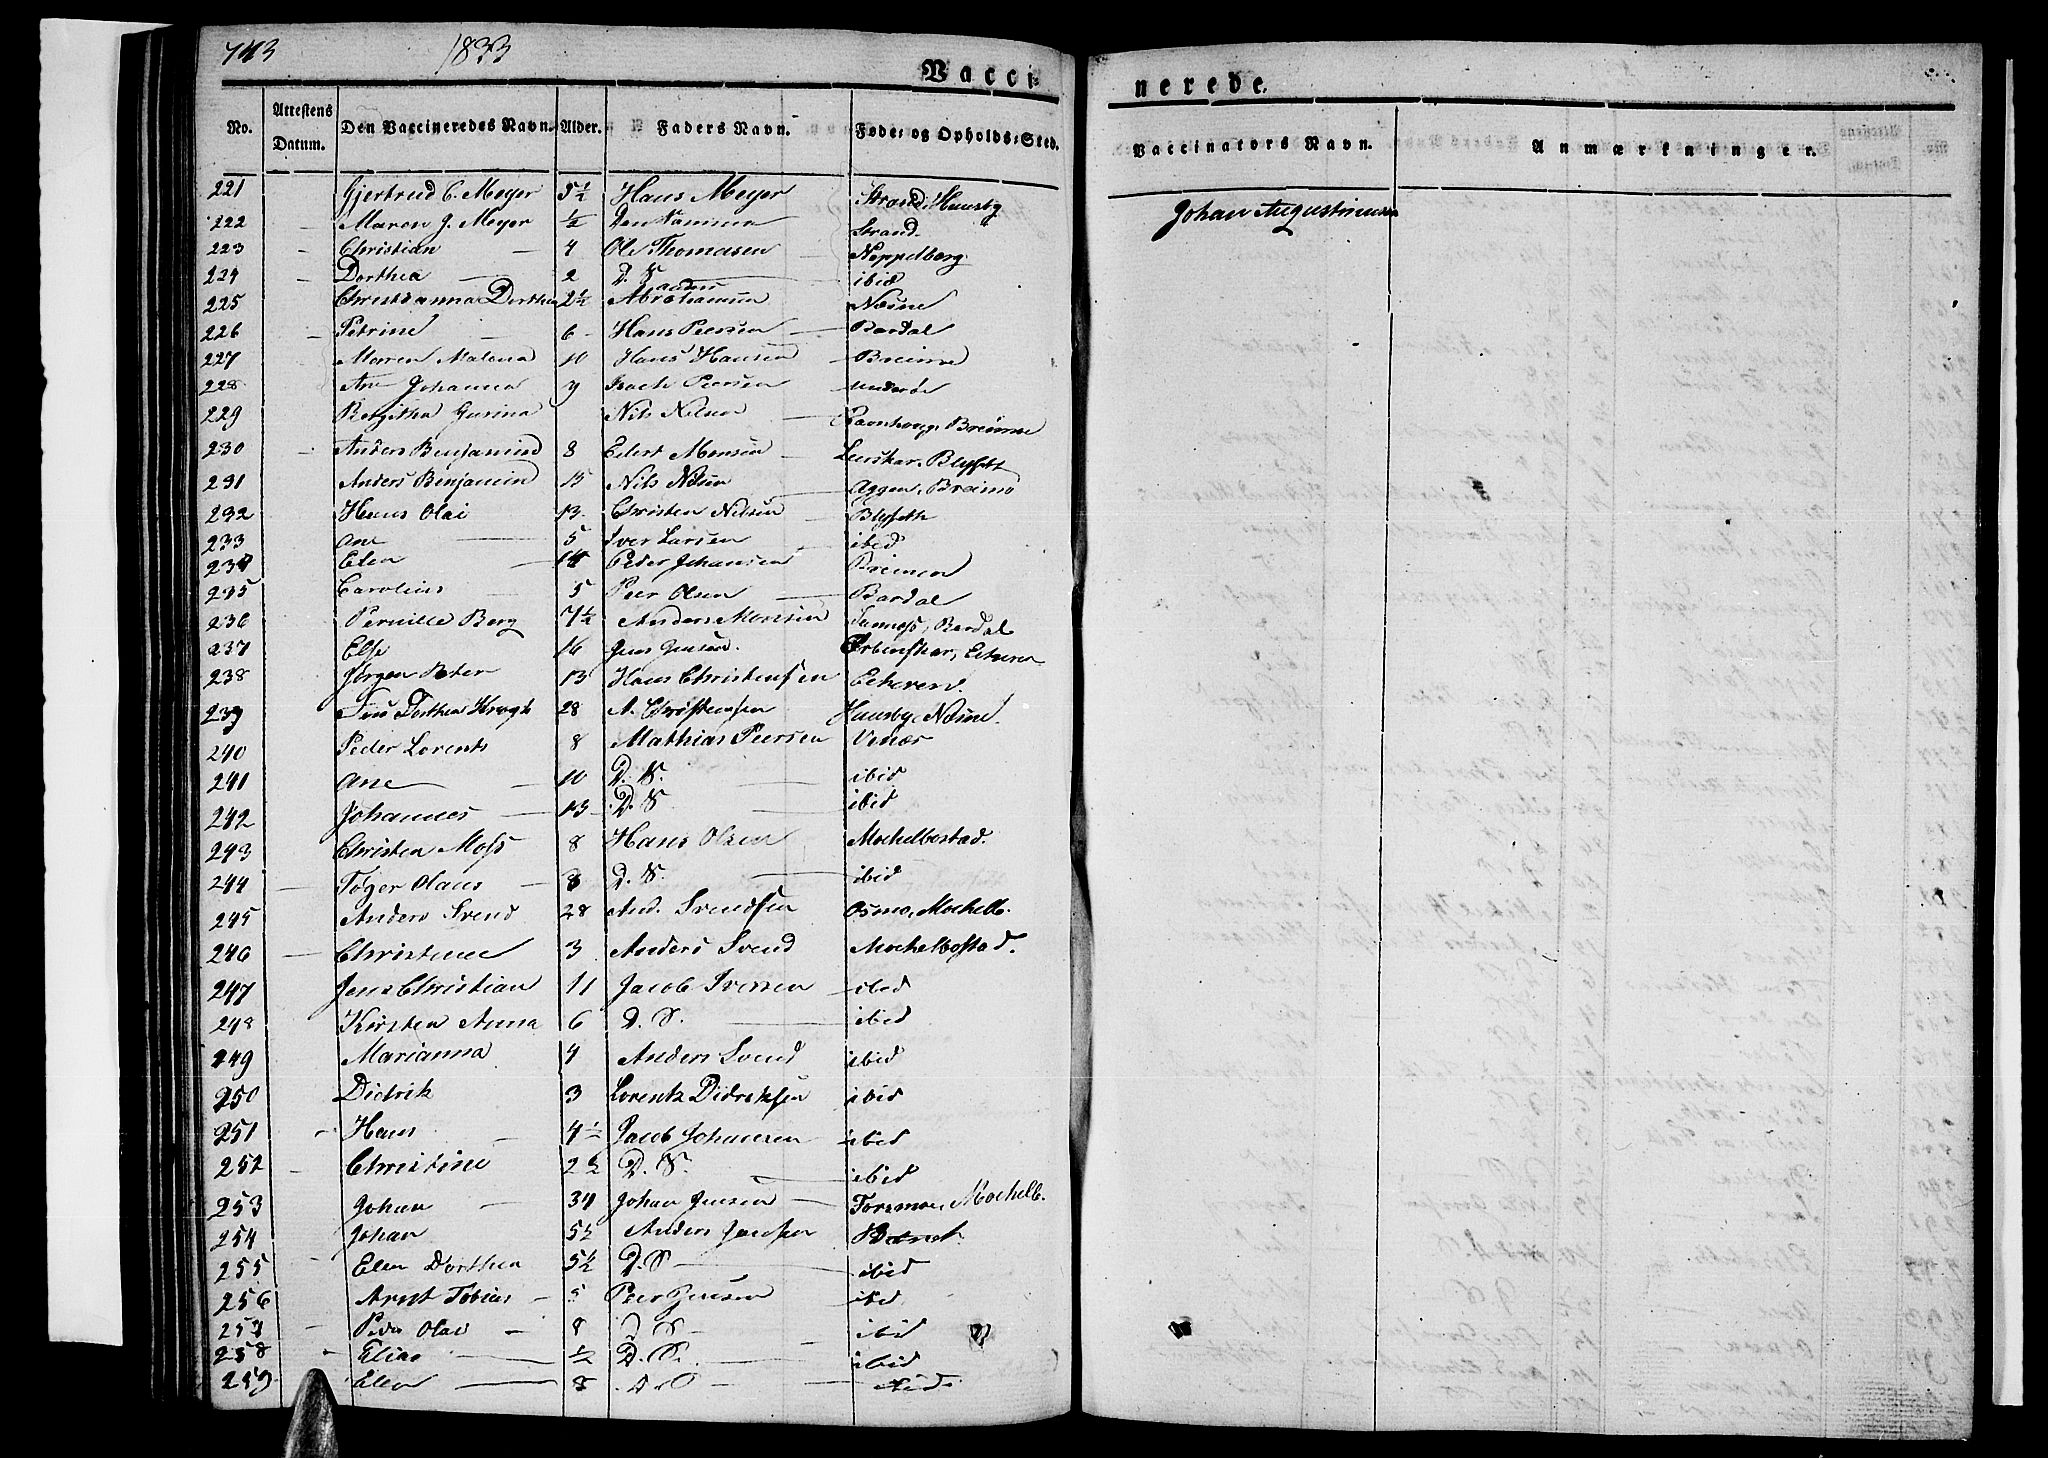 743 1833
Vaccinerede.
No. Attestens Datum. Den Vaccineredes Navn. Alder. Faders Navn. Føde= og Opholds=Sted. Vaccinators Navn. Anmærkninger.
221 Gjertrud C. Meyer 5½ Hans Meyer Strand, Huusby Johan Augustinusen
222 Maren J. Meyer ½ Den Samme Strand
223 Christian 4 Ole Thomasen Neppelberg
224 Dorthea 2 D. S. ibid
225 Christianna Dorthea 2½ Abrahamsen Næsne
226 Petrine 6 Hans Peersen Bardal
227 Maren Malena 10 Hans Hansen Breimo
228 Ane Johanna 9 Isach Peersen
229 Birgitha Gurina Nils Nilsen Ravnhaug, Breimo
230 Anders Benjamin 8 Edert Monsen Lenskar, Blyseth
231 Anders Benjamin 15 Nils Nilsen Aggen, Breimo
232 Hans Olai 13 Christen Nilsen Blyseth
233 Ane 5 Iver Larsen ibid
234 Elen 14 Peder Johansen Breimoe
235 Carolius 5 Peer Olsen Bardal
236 Pernille Berg 7½ Anders Monsen Sannes, Bardal
237 Else 16 Jens Jensen. Eteren
238 Jørgen Peter 13 Hans Christensen Eteren
239 Dorthea Krogh 28 A. Christensen Huusby, Næsne.
240 Peder Lorents 8 Mathias Peersen Vinæs
241 Ane 10 D. S. ibid
242 Johannes 13 D. S. ibid
243 Christen Moss 8 Hans Olsen Mochelbostad.
244 Tøger Olaus 8 D. S. ibid
245 Anders Svend 28 And. Svendsen Osmo, Mochelb.
246 Christine 3 Anders Svend Mochelbostad.
247 Jens Christian 11 Jacob Iversen ibid
248 Kirsten Anna 6 D. S. ibid
249 Marianna 4 Anders Svend ibid
250 Didrik 3 Lorentz Didriksen ibid
251 Hans 4½ Jacob Johansen ibid
252 Christine 2½ D. S. ibid
253 Johan 34 Johan Jensen Forsmoe, Mochelb.
254 Johan 5½ Anders Jensen
255 Elen Dorthea 3½ D. S. ibid
256 Arnt Tobias 5 Peer Jensen ibid
257 Peder Olai 8 D. S. ibid
258 Elias ½ D. S. ibid
259 Elen 8 D. S. ibid